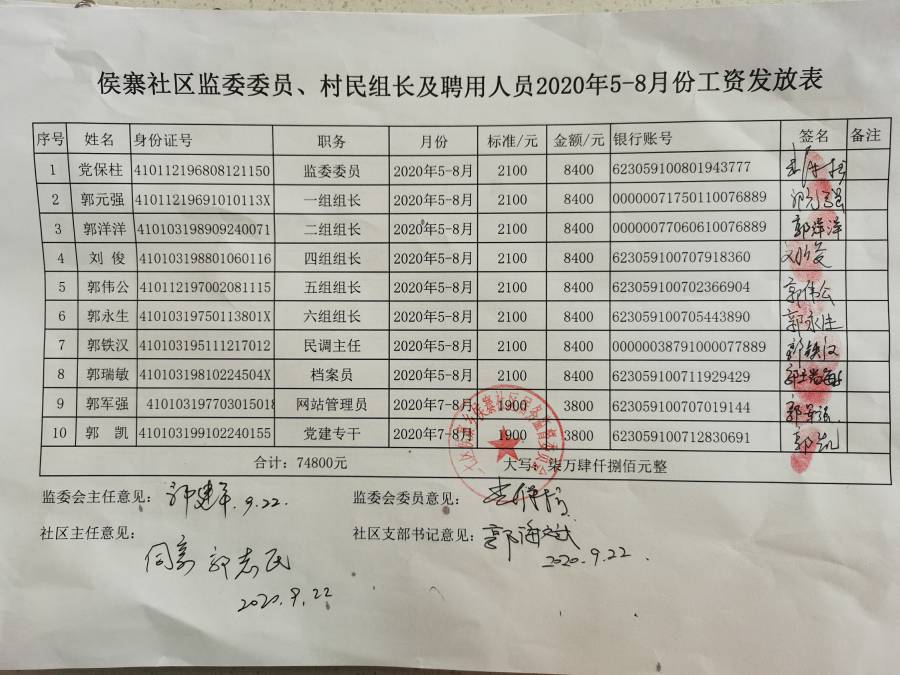 侯寨社区监委委员、村民组长及聘用人员2020年5-8月份工资发放表
序号 姓名 身份证号 职务 月份 标准/元 金额/元 银行账号 签名 备注
1 党保柱 410112196808121150 监委委员 2020年5-8月 2100 8400 623059100801943777
2 郭元强 41011219691010113X 一组组长 2020年5-8月 2100 8400 00000071750110076889 郭元强
3 郭洋洋 410103198909240071 二组组长 2020年5-8月 2100 8400 00000077060610076889 郭洋洋
4 刘 俊 410103198801060116 四组组长 2020年5-8月 2100 8400 623059100707918360 刘俊
5 郭伟公 410112197002081115 五组组长 2020年5-8月 2100 8400 623059100702366904 郭伟公
6 郭永生 41010319750113801X 六组组长 2020年5-8月 2100 8400 623059100705443890 郭永生
7 郭铁汉 410103195111217012 民调主任 2020年5-8月 2100 8400 00000038791000077889 郭铁汉
8 郭瑞敏 41010319810224504X 档案员 2020年5-8月 2100 8400 623059100711929429 郭瑞敏
9 郭军强 410103197703015018 网站管理员 2020年7-8月 1900 3800 623059100707019144 郭军强
10 郭 凯 410103199102240155 党建专干 2020年7-8月 1900 3800 623059100712830691 郭凯
合计：74800元 大写：柒万肆仟捌佰元整
监委会主任意见： 郭建军 9.22. 监委会委员意见：
社区主任意见： 社区支部书记意见： 郭海斌
同意 郭志民 2020.9.22.
2020.9.22